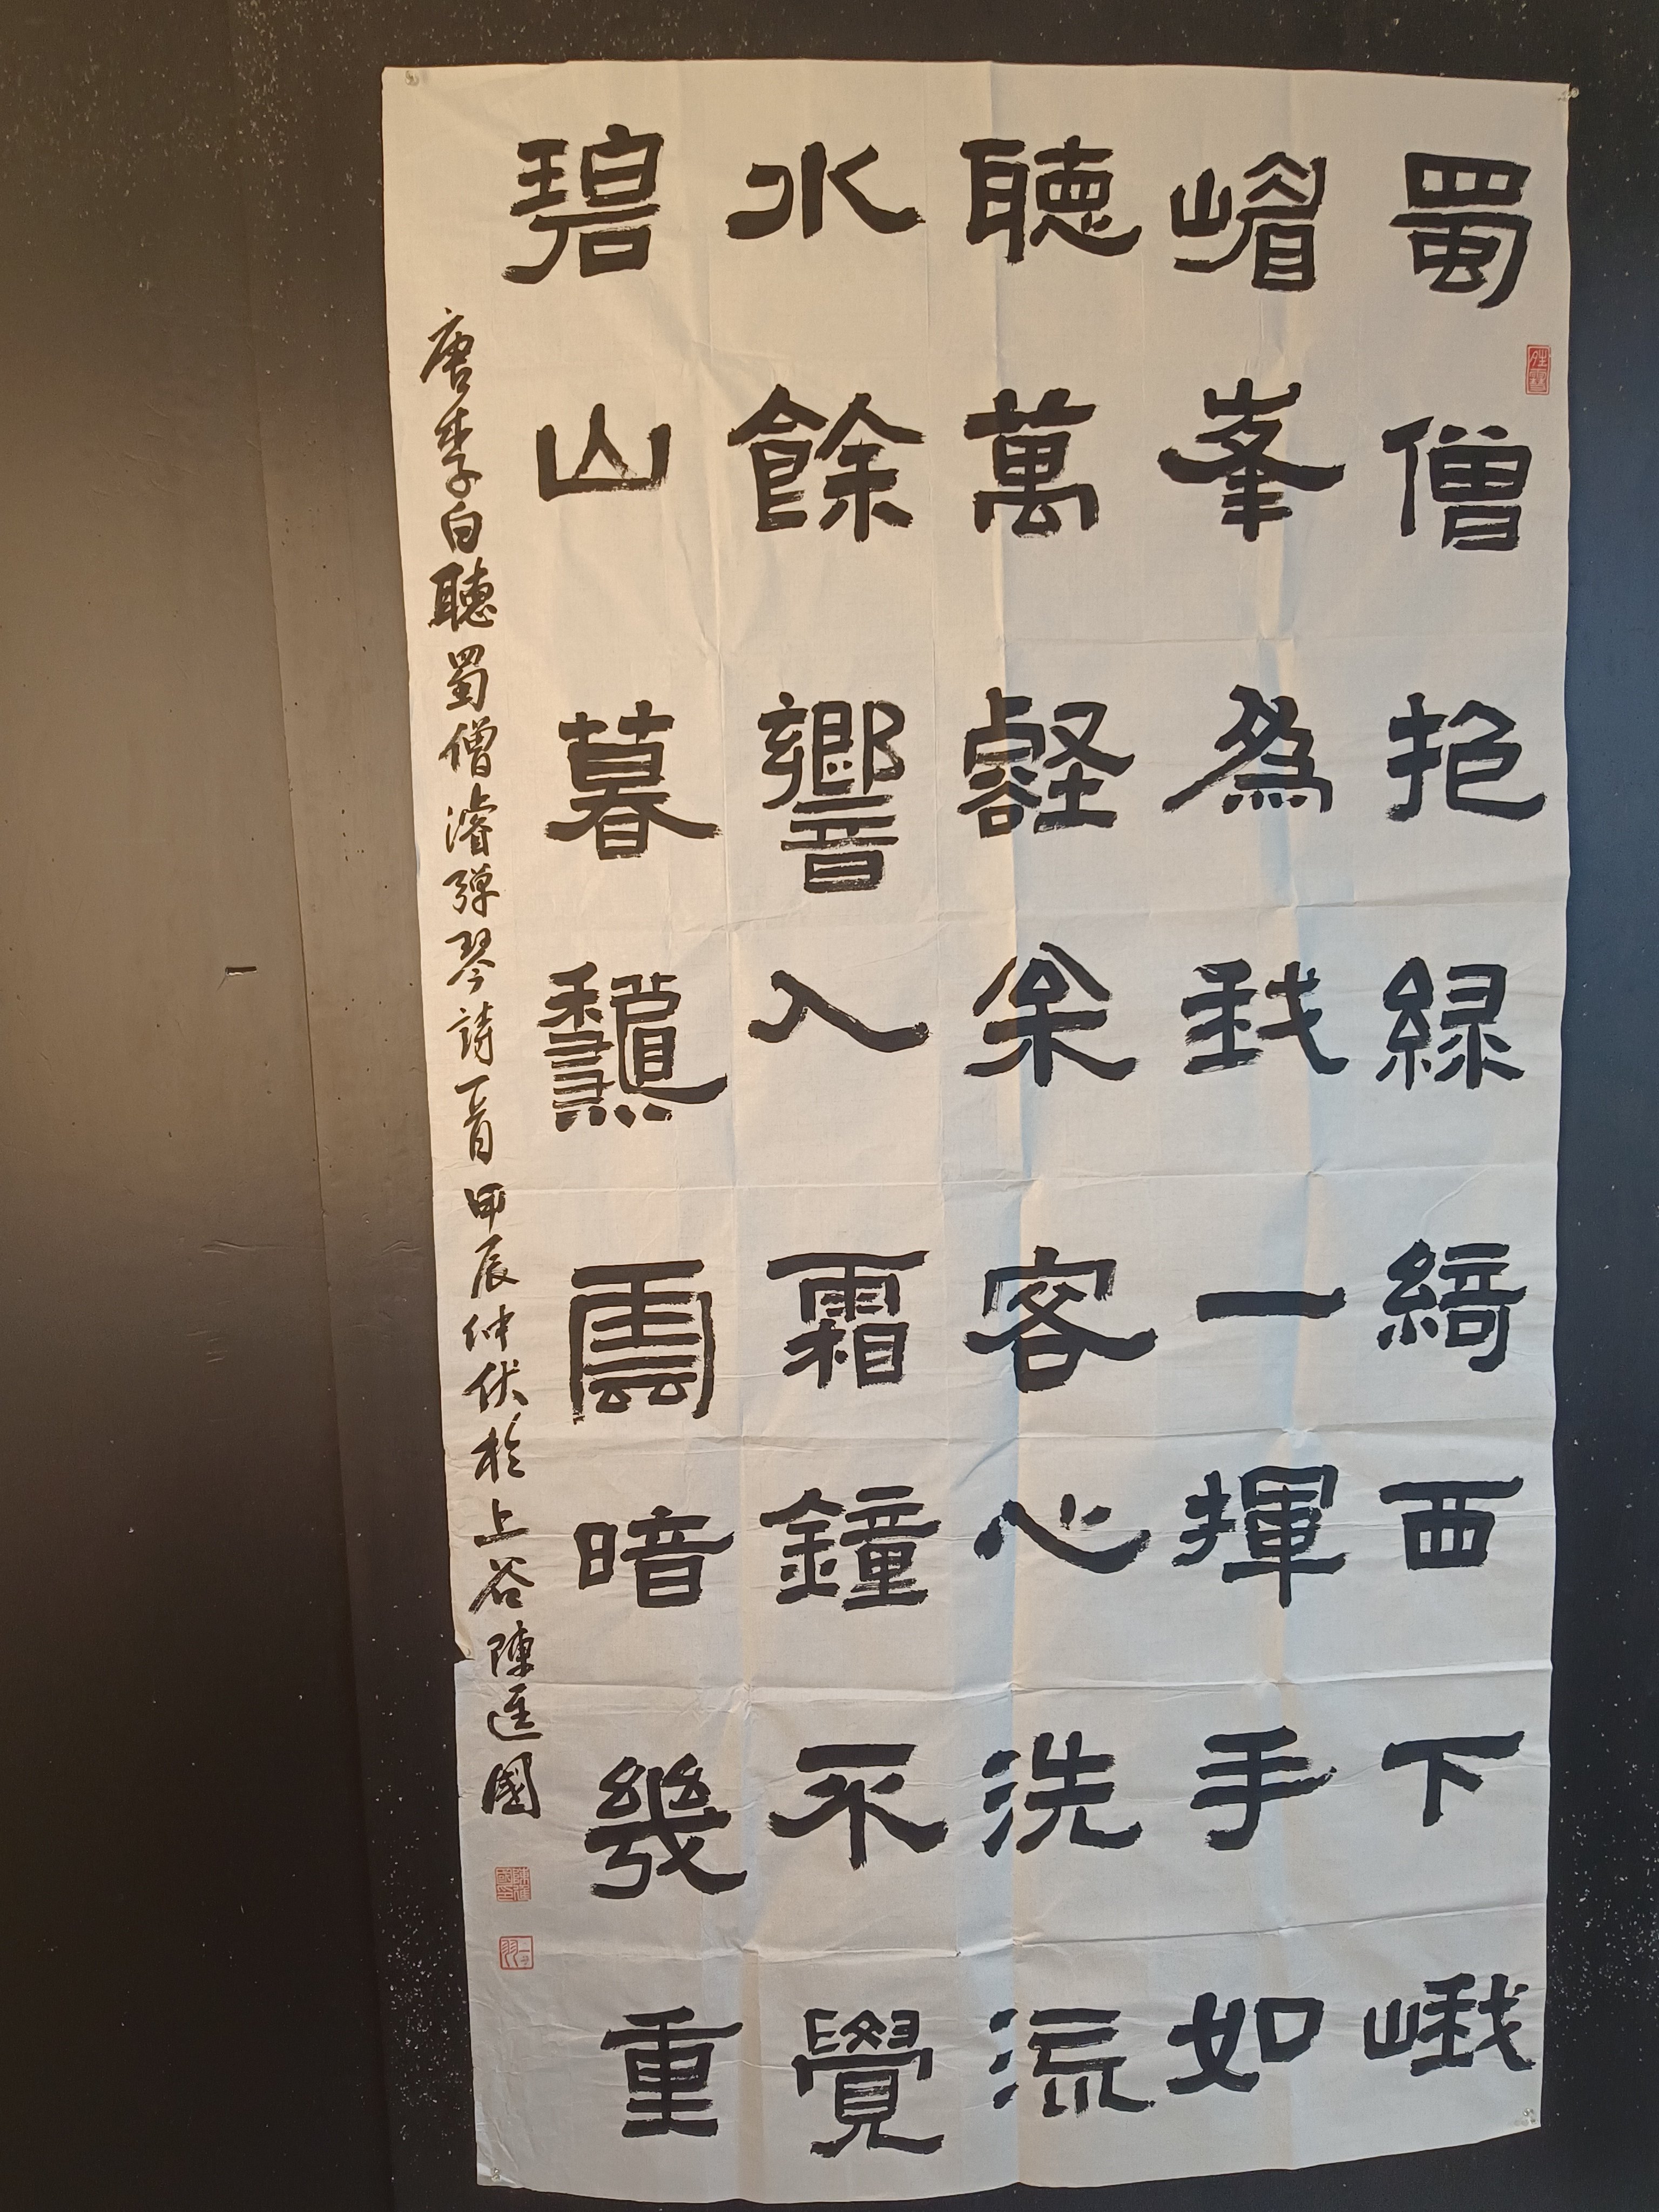 蜀僧抱緑綺西下峨
嵋峯為我一揮手如
聽萬壑枀客心洗流
水餘響入霜鐘不覺
碧山暮龝雲暗幾重
唐李白聽蜀僧濬彈琴詩一首甲辰仲伏於上谷陳進國